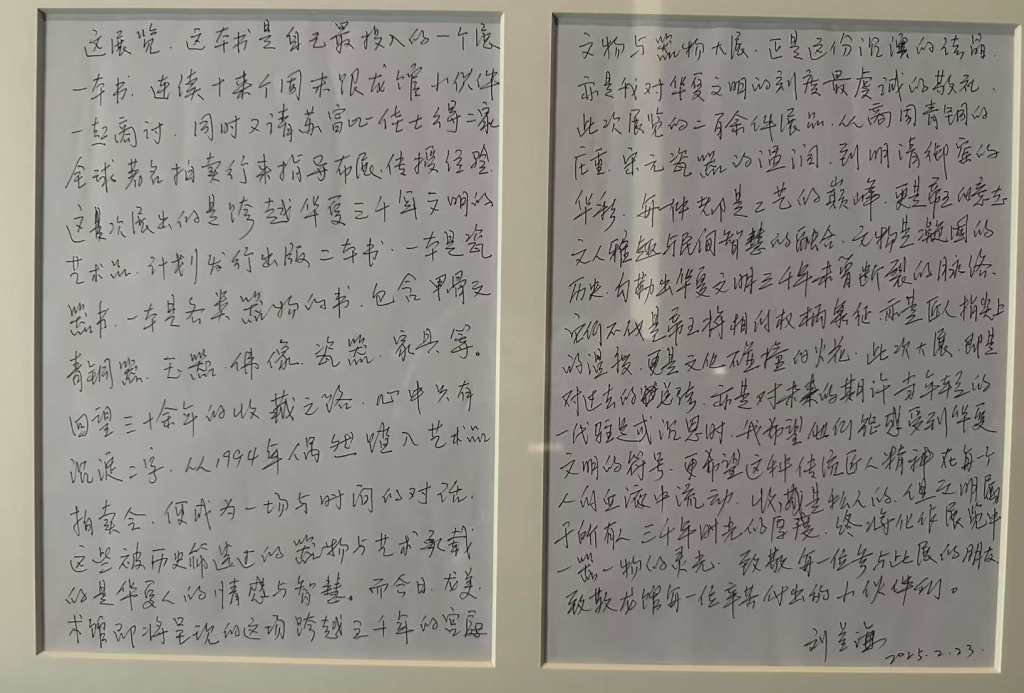 这展览、这本书是自己最投入的一个展
一本书、连续十来个周末跟龙馆小伙伴
一起商讨、同时又请苏富比佳士得二家
全球著名拍卖行来指导布展、传授经验、
这是次展出的是跨越华夏三千年文明的
艺术品、计划发行出版二本书、一本是瓷
器书、一本是各类器物的书、包含甲骨文
青铜器、玉器、佛像、瓷器、家具等。
回望三十余年的收藏之路、心中只有
沉淀二字、从1994年偶然踏入艺术品
拍卖会、便成为一场与时间的对话、
这些被历史筛选过的器物与艺术承载
的是华夏人的情感与智慧。而今日、龙美
术馆即将呈现的这场跨越三千年的宫廷
文物与器物大展、正是这份沉淀的结晶、
亦是我对华夏文明的刻度最虔诚的敬礼、
此次展览的二百余件展品、从商周青铜的
庄重、宋元瓷器的温润、到明清御窑的
华彩、每一件都是工艺的巅峰、更是帝王的意志
文人雅趣与民间智慧的融合、文物是凝固的
历史、勾勒出华夏文明三千年未曾断裂的脉络、
它们不仅是帝王将相的权柄象征、亦是匠人指尖上
的温投、更是文化碰撞的火花、此次大展、即是
对过去的总结、亦是对未来的期许、当年轻的
一代驻足或沉思时、我希望他们能感受到华夏
文明的符号、更希望这种传统匠人精神在每个
人的血液中流动、收藏是私人的、但文明属
于所有人、三千年时光的厚度、终将化作展览中
一器一物的灵光、致敬每一位参与此展的朋友
致敬龙馆每一位辛苦付出的小伙伴们。
2025.2.23.